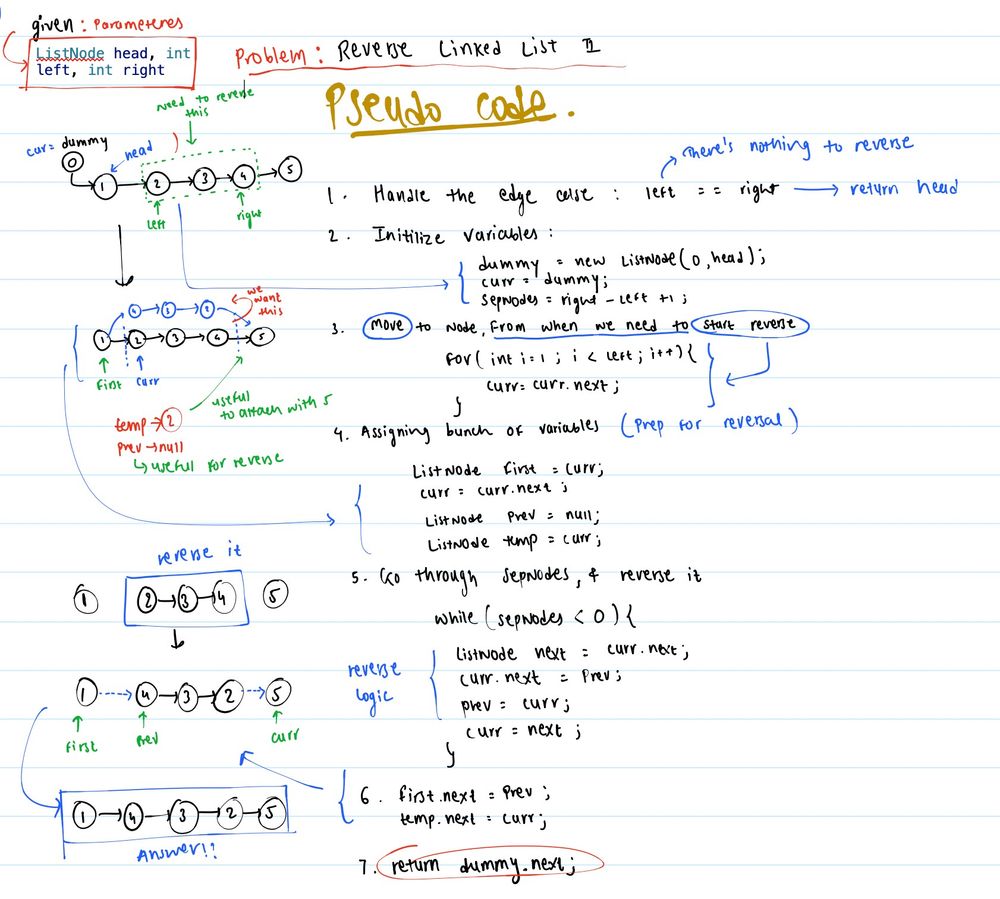 given : Parameteres
ListNode head, int
left, int right
Problem : Reverse Linked List II
Pseudo code.
need to reverse
this
cur = dummy
0
head
1 2 3 4 5
left
right
1. Handle the edge case : left == right → return head
There's nothing to reverse
2. Initilize variables :
dummy = new ListNode(0, head);
curr = dummy;
sepNodes = right - left + 1;
we
want
this
4 3 2
1 2 3 4 5
first
curr
useful
to attach with 5
temp → 2
prev → null
↳ useful for reverse
3. Move to node, from when we need to start reverse
for( int i = 1 ; i < left ; i++){
cur = curr.next ;
}
4. Assigning bunch of variables (Prep for reversal)
ListNode first = curr;
curr = curr.next ;
ListNode prev = null;
ListNode temp = curr;
reverse it
1 2 → 3 → 4 5
5. Go through sepNodes, & reverse it
while (sepNodes < 0) {
reverse
logic
ListNode next = curr.next;
curr.next = Prev;
prev = curr;
curr = next ;
}
1 4 → 3 → 2 5
first
prev
curr
6. first.next = Prev ;
temp.next = curr;
1 → 4 → 3 → 2 → 5
Answer!!
7. return dummy.next;